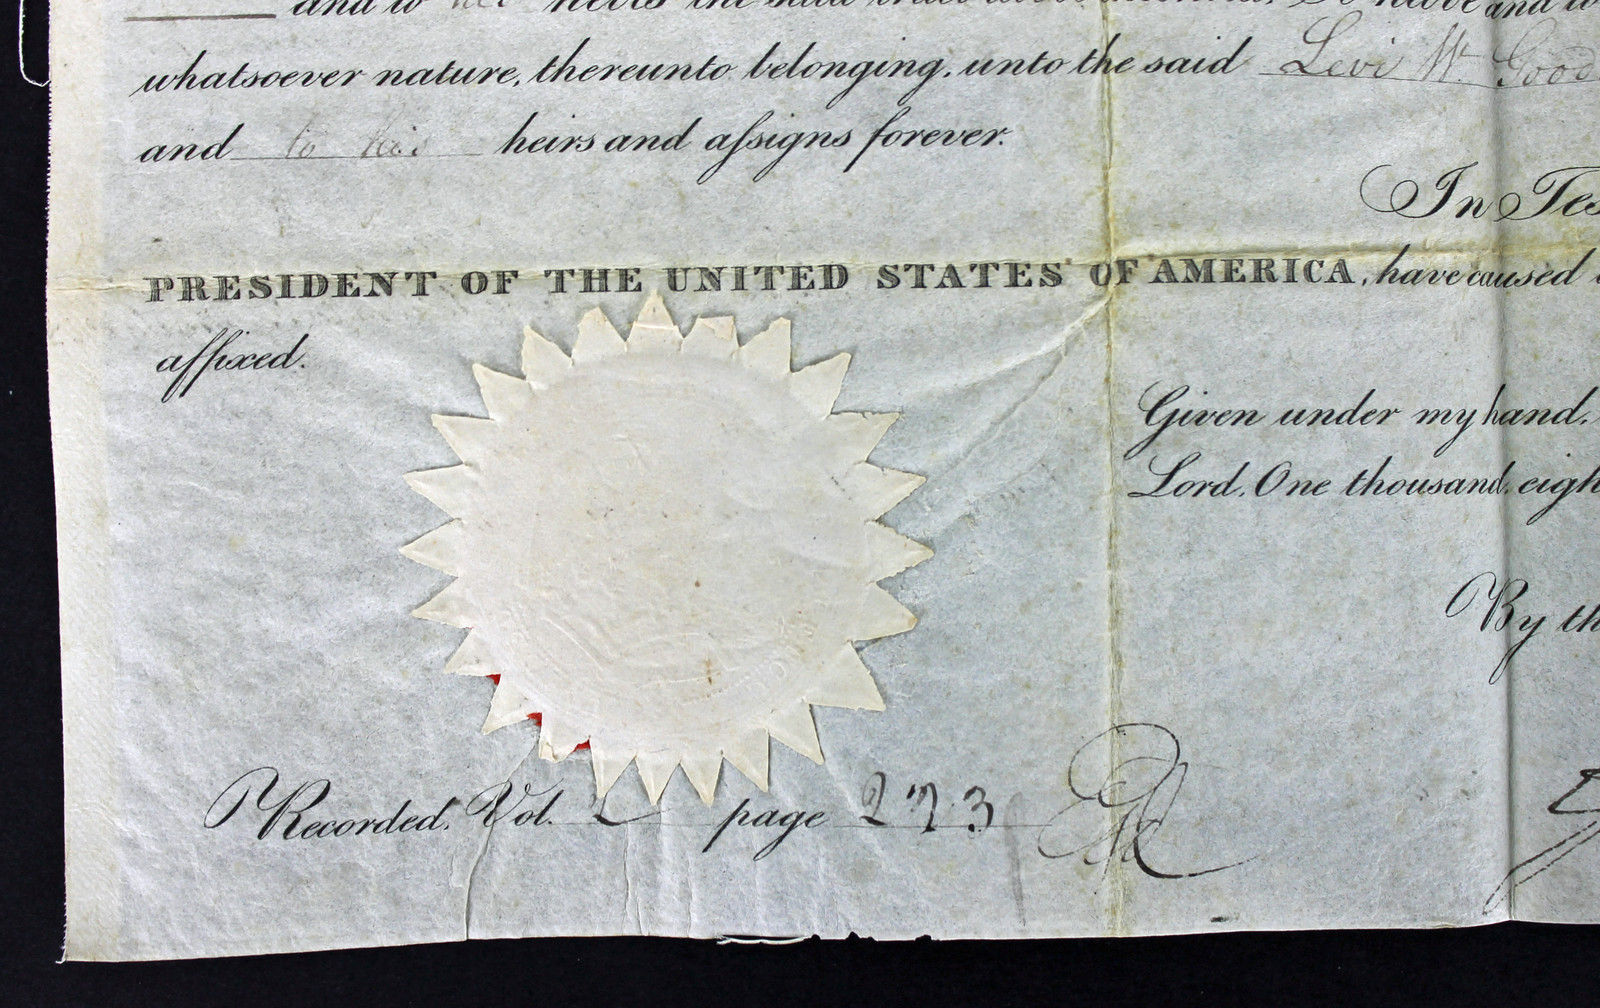 and to his heirs the said
whatsoever nature, thereunto belonging, unto the said Levi W. Good
and to his heirs and aſsigns forever.
In Tes
PRESIDENT OF THE UNITED STATES OF AMERICA, have caused
affixed.
Given under my hand,
Lord, One thousand eigh
By th
Recorded, Vol. 2 page 273